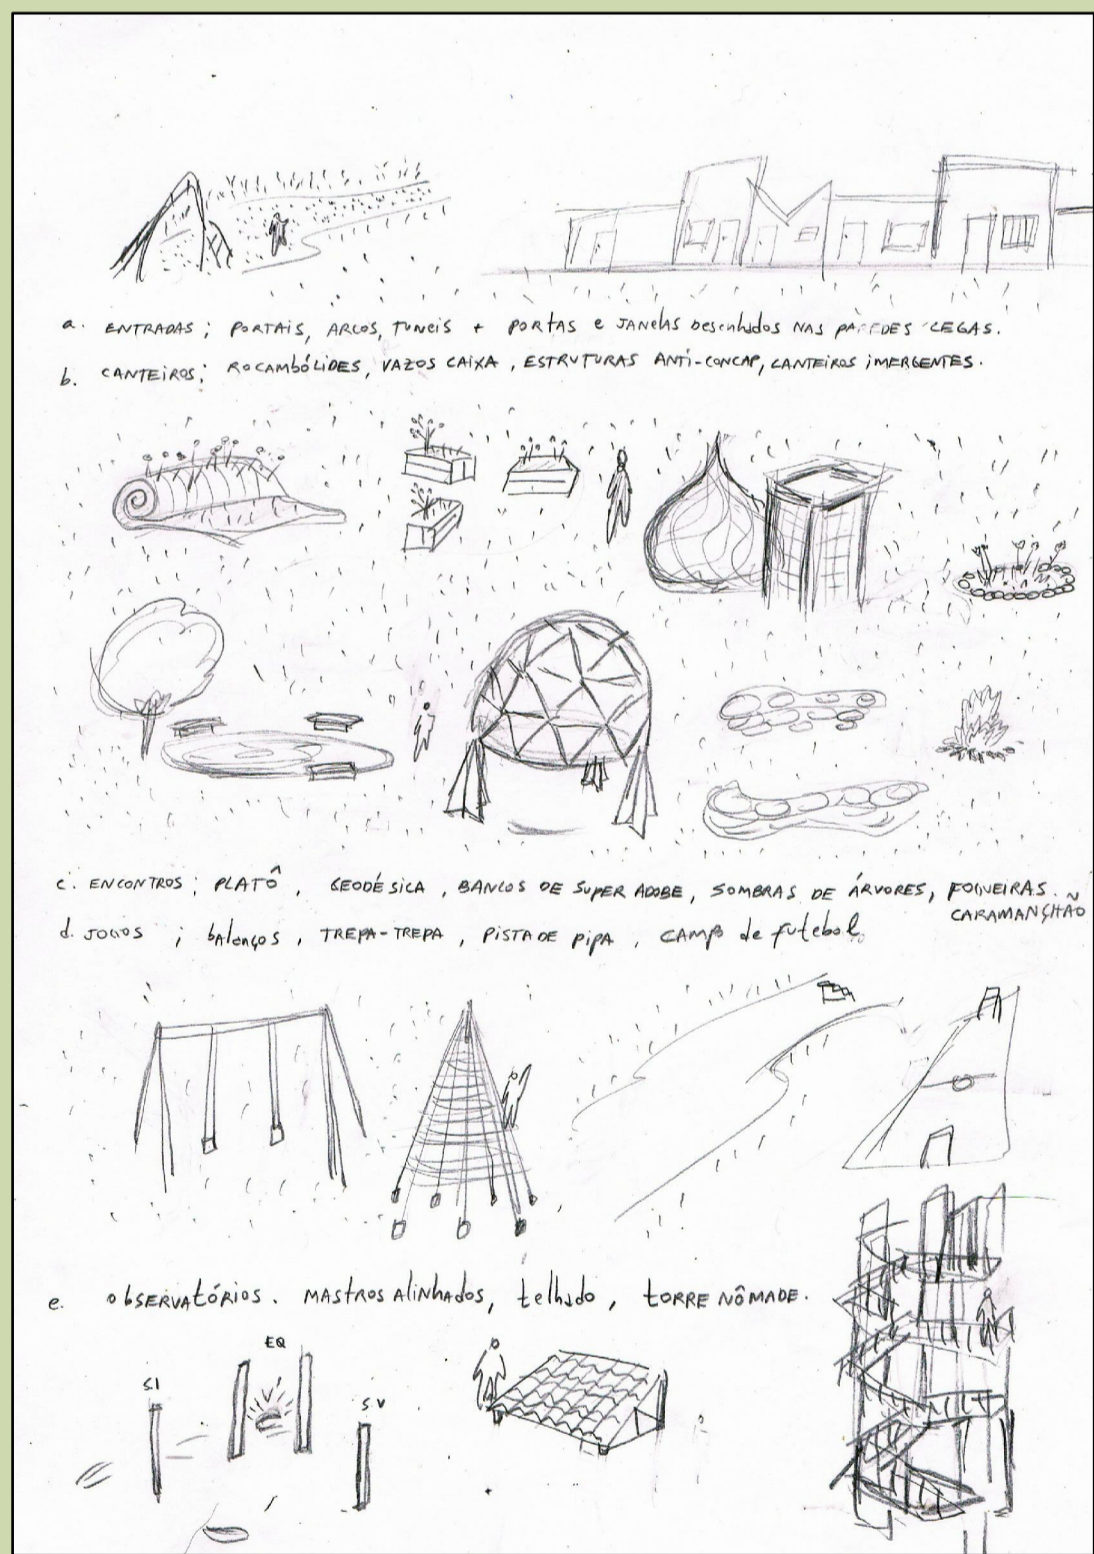 a. ENTRADAS; PORTAIS, ARCOS, TUNEIS + PORTAS e JANELAS DesenhAdos NAS PAREDES CEGAS.
b. CANTEIROS; ROCAMBÓLIDES, VAZOS CAIXA, ESTRUTURAS ANTI-CONCAP, CANTEIROS iMERGENTES.
c. ENCONTROS; PLATÔ, GEODÉSICA, BANCOS DE SUPER ADOBE, SOMBRAS DE ÁRVORES, FOGUEIRAS.
CARAMANCHÃO
d. JOGOS; bAlanços, TREPA-TREPA, PISTA DE PiPA, CAMPO de futebol.
e. ObSERVATÓRIOS. MASTROS AliNhADOS, telhado, TORRE NÔMADE.
EQ
S.I
S.V